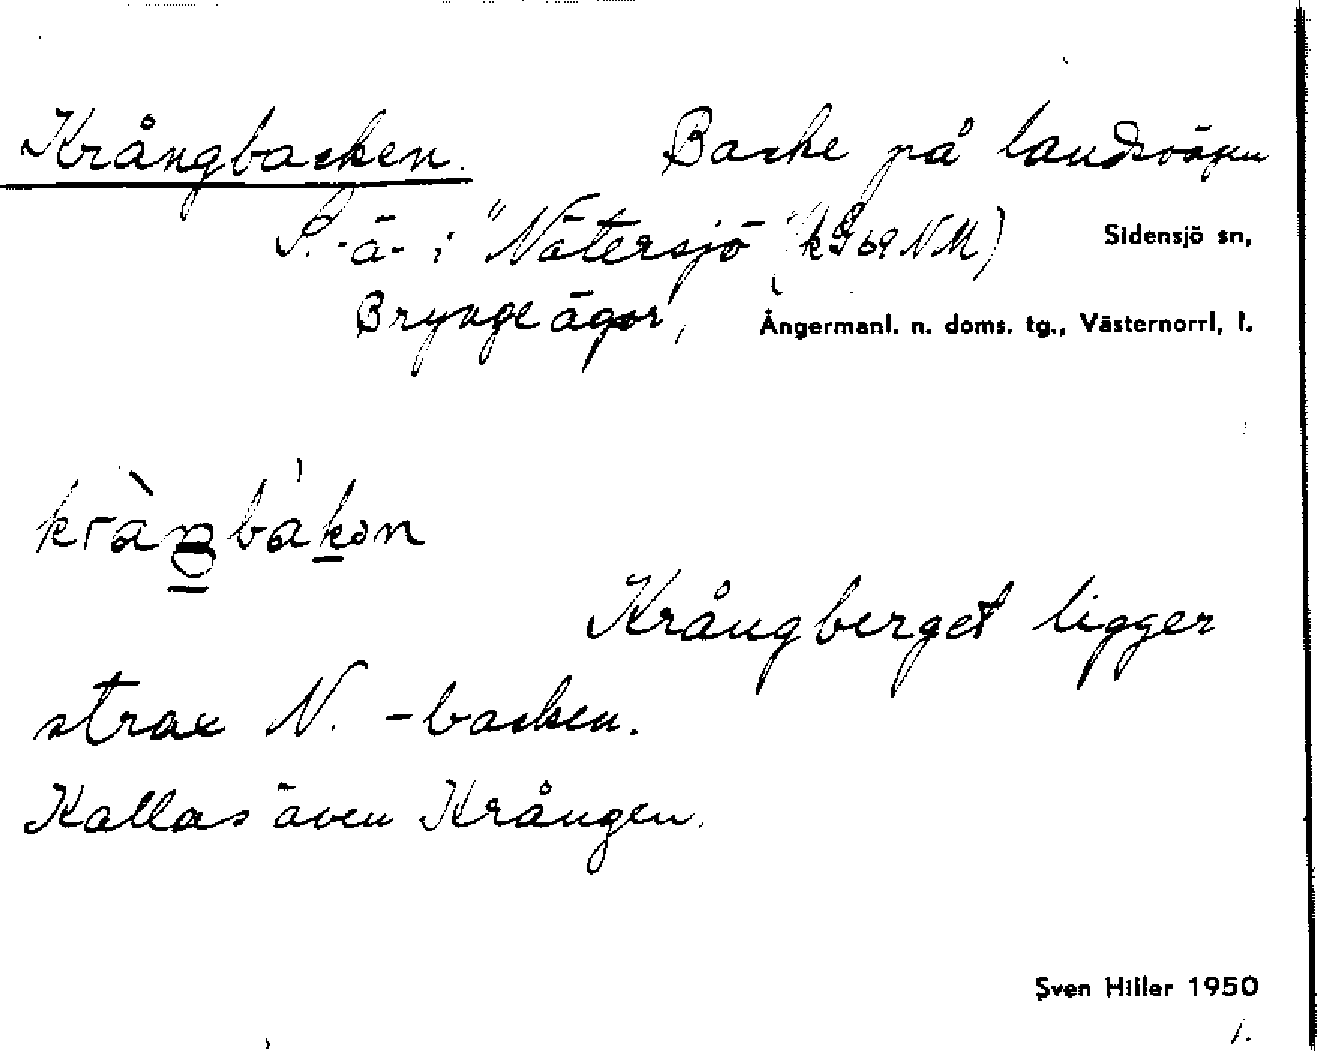 Krångbacken. Backe på landsvägen
S. -ä- i "Nätersjö" (k 9 69 NM) Sidensjö sn,
Brynge ägor, Ångermanl. n. doms. tg., Västernorrl. l.
kràŋbàkən
Krångberget ligger
strax N. -backen.
Kallas även Krången.
Sven Hiller 1950
1.